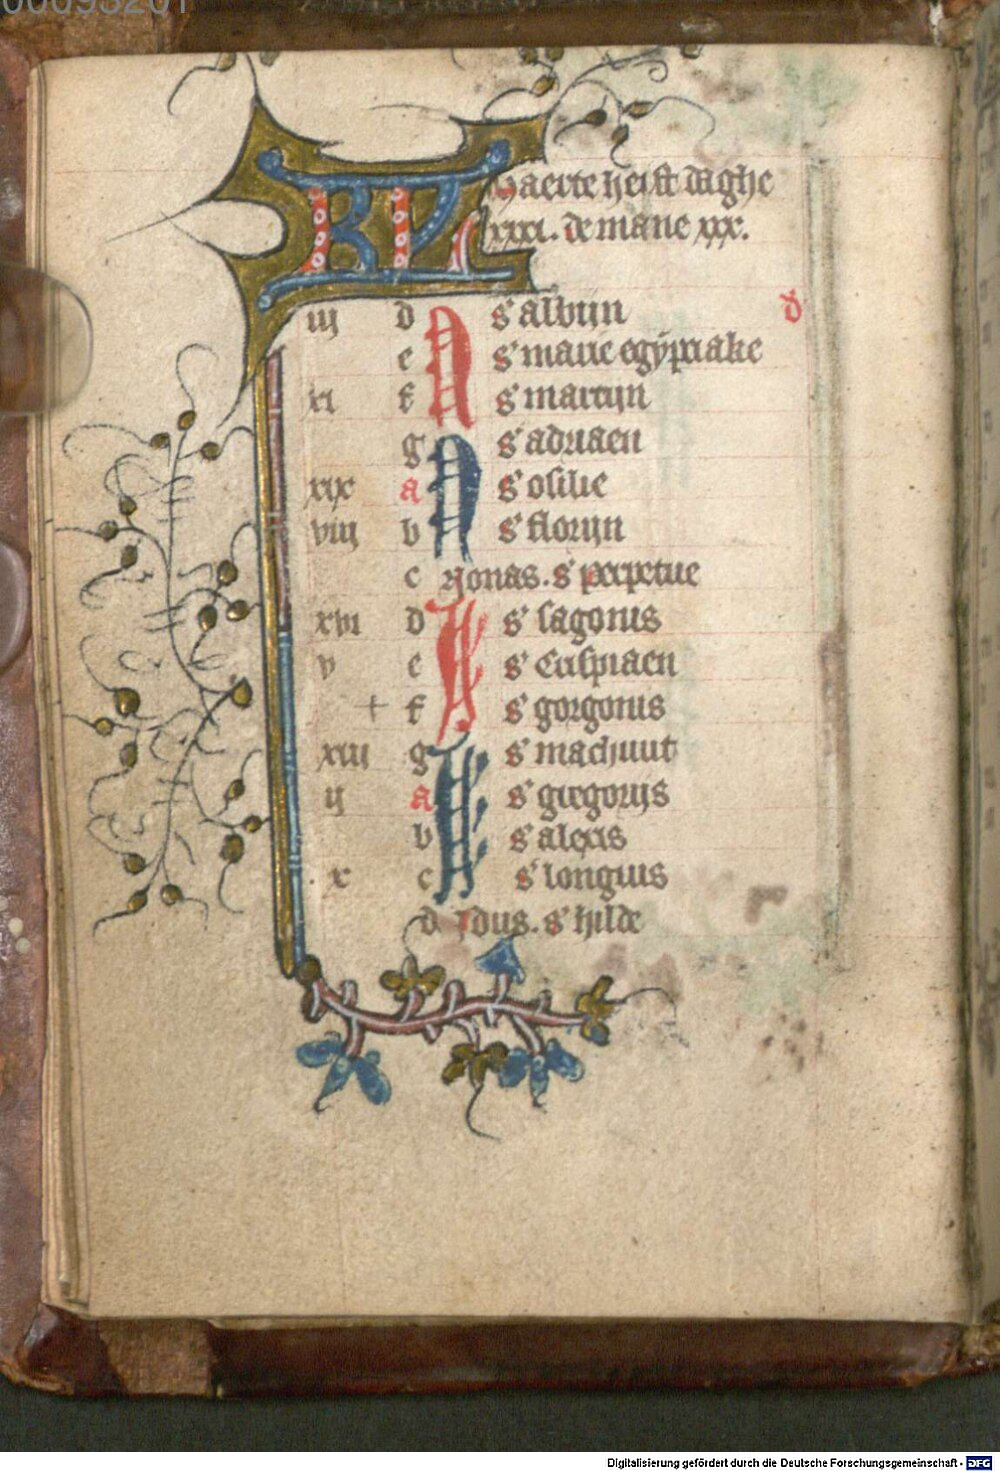 00093201
KL Maerte heift daghe
xxxi. de mane xxx.
iij d A s' albijn d
e s' marie egÿptiake
xi f s' martijn
g N s' adriaen
xix a s' osilie
viij b s' florijn
c Nonas. s' perpetue
xvi d s' sagonis
v e s' Crispiaen
+ f s' gorgonis
xiij g s' machuut
ij a s' gregorijs
b s' alexis
x c s' longius
d Idus. s' hilde
Digitalisierung gefördert durch die Deutsche Forschungsgemeinschaft - DFG